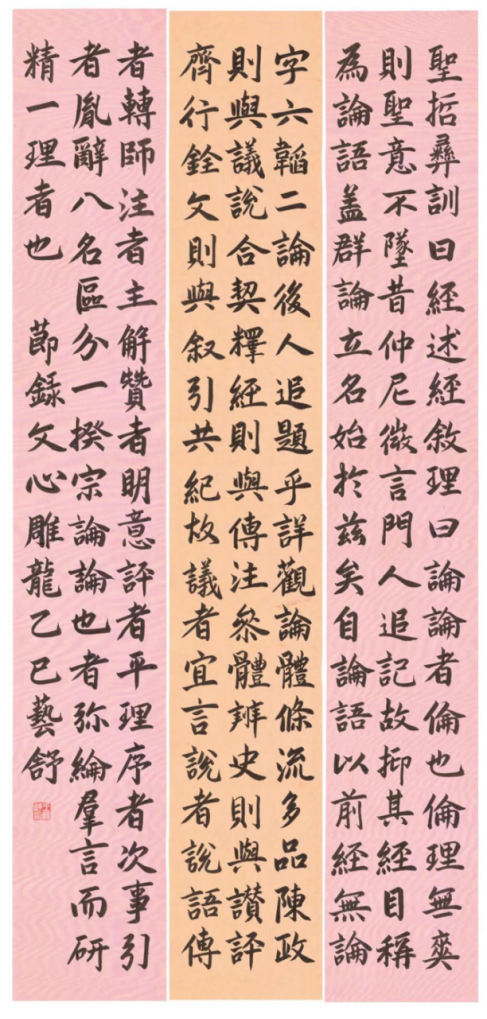 聖哲彝訓曰經述經敘理曰論論者倫也倫理無爽
則聖意不墜昔仲尼微言門人追記故抑其經目稱
為論語蓋群論立名始於茲矣自論語以前經無論
字六韜二論後人追題乎詳觀論體條流多品陳政
則與議說合契釋經則與傳注參體辨史則與讚評
齊行銓文則與叙引共紀故議者宜言說者說語傳
者轉師注者主解贊者明意評者平理序者次事引
者胤辭八名區分一揆宗論論也者弥綸羣言而研
精一理者也 節錄文心雕龍乙巳藝舒